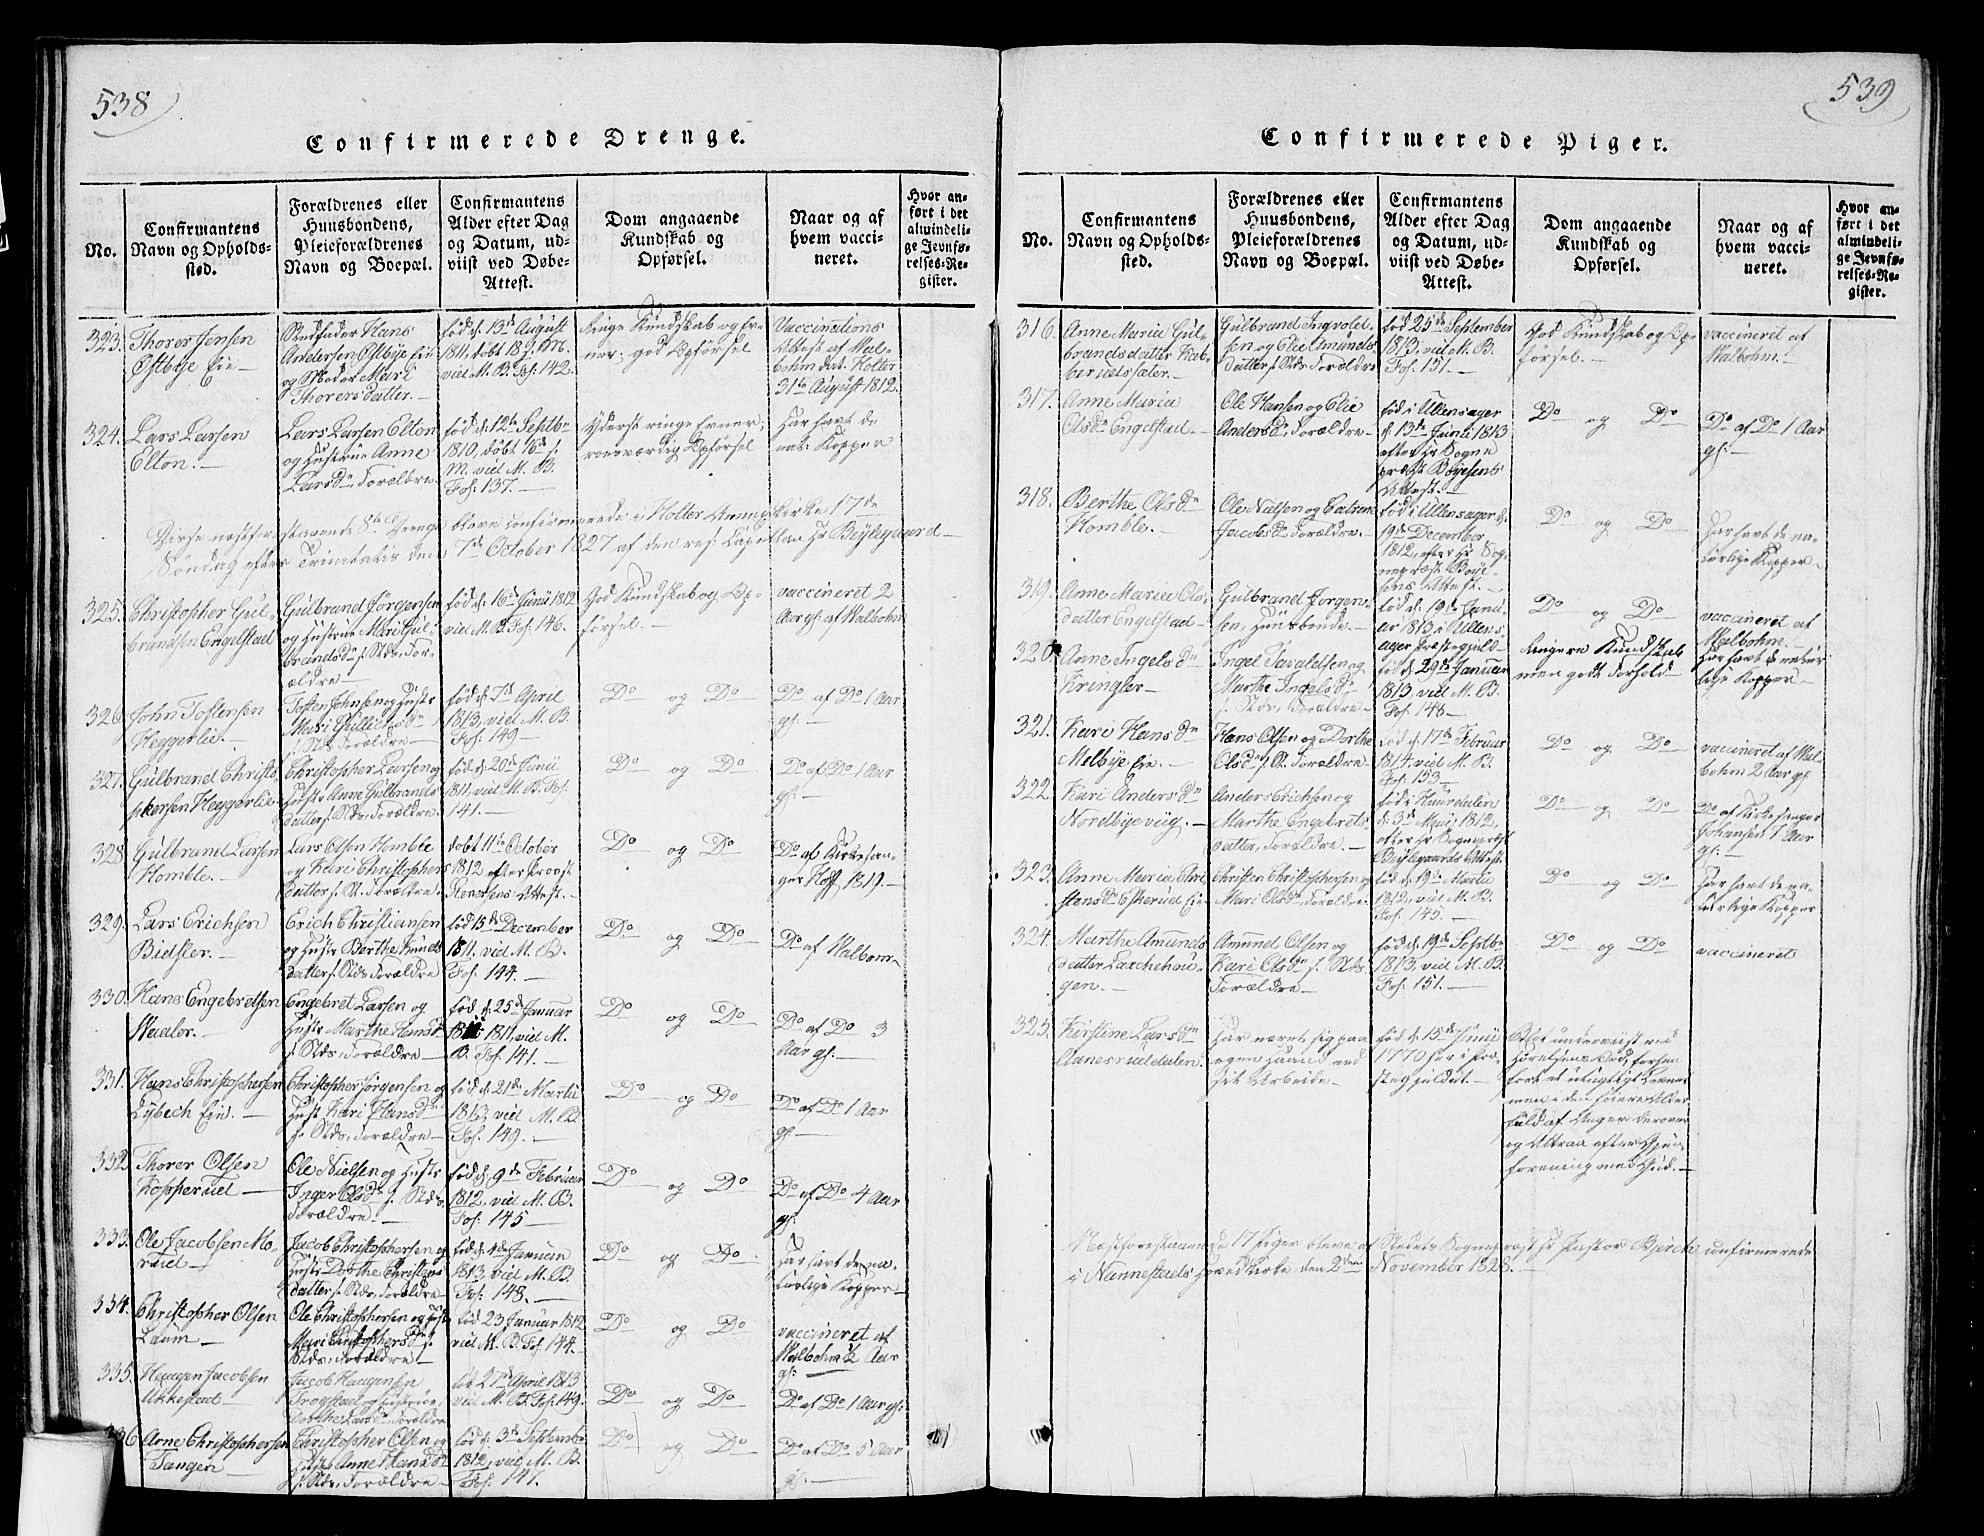 538
Confirmerede Drenge.
No.
Confirmantens
Navn og Opholds-
sted.
Forældrenes eller
Huusbondens,
Pleieforældrenes
Navn og Boepæl.
Confirmantens
Alder efter Dag
og Datum, ud-
viist ved Døbe-
Attest.
Dom angaaende
Kundskab og
Opførsel.
Naar og af
hvem vacci-
neret.
Hvor an-
ført i det
almindeli-
ge Jevnfø-
relses-Re-
gister.
323. Thorer Jensen
Østbye Eie—
Stedfader Hans
Andersen Østbye Eie
og Moder Mari
Thorersdatter.—
født d: 13de August
1811, døbt 18 s. M.
viid M. B. Fol: 142.—
Ringe Kundskab og Ev-
ner; god Opførsel
Vaccinations
Attest af Mal-
bohm dat. Holter
31te August 1812.
324. Lars Larsen
Elton.—
Lars Larsen Elton
og Hustrue Anne
Larsdr Forældre.
født d: 12te Septbr
1810, døbt 16de s.
M. viid M. B.
Fol: 137.—
Yderst ringe Evner,
roesværdig Opførsel
Har havt de
nat: Kopper
Disse næstforestaaende 8te Drenge bleve confirmerede i Holter Annex Kirke 17de
Søndag efter Trinitatis den 7de October 1827 af den res: Capellan Hr Beylegaard—
325. Christopher Gul-
brandsen Engelstad
Gulbrand Jörgensen
og Hustrue Mari Gul-
brandsdr s. Stds, For-
ældre.
født d: 16de Junii 1812
viid M. B. Fol: 146.—
God Kundskab og Op-
førsel.—
vaccineret 2
Aar gl: af Malbohm
326. John Tostensen
Heggerlie.—
Tosten Johnsen og Hustr
Mari Gulliksdr
s. Stds Forældre—
født d: 7de April
1813, viid M. B.
Fol: 149—
Do og Do
Do af Do 1 Aar
gl:—
327. Gulbrand Christo-
phersen Heggerlie—
Christopher Larsen og
Hustr Anne Gulbrands
datter s. Stds, Forældre.
født d: 20de Junii
1811, viid M. B. Fol:
141.—
Do og Do
Do af Do 1 Aar
gl:—
328. Gulbrand Larsen
Homble.—
Lars Olsen Homble
og Kari Christophers
datter s. St: Forældre.
døbt 11te October
1812 efter Provst
Stenersens Attest.—
Do og Do
Do af Kirkesan-
ger Hoff, 1819.—
329. Lars Erichsen
Bidsler.—
Erich Christiansen
og Hustr Berthe Knuds
datter s. Stds Forældre
født 15de December
1811, viid M. B.
Fol: 144.—
Do og Do
Do af Malbom—
330. Hans Engebretsen
Maaler.—
Engebret Larsen og
Hustr Marthe Hansdr
s. Stds, Forældre—
født d: 25de Januar
1811, viid M.
B. Fol: 141.—
Do og Do
Do af Do 3
Aar gl:—
331. Hans Christophersen
Lybech Eie.—
Christopher Jørgensen og
Hust Kari Hansdr
s. Stds, Forældre—
født d: 21de Martii
1813, viid M. B.
Fol: 149.—
Do og Do
Do af Do 1 Aar
gl:—
332. Thorer Olsen
Kopperud—
Ole Nielsen og Hustr
Inger Olsdr s. Stds,
Forældre—
født d: 9de Februar
1812, viid M. B.
Fol: 145—
Do og Do
Do af Do 4 Aar
gl:
333. Ole Jacobsen Mo-
ruud—
Jacob Christophersen og
Hustr Dorthe Christens
datter s. Stds, Forældre
født d: 4de Januar
1813, viid M. B.
Fol: 148.—
Do og Do
Har havt de na-
turlige Kopper
334. Christopher Olsen
Laum—
Ole Christophersen og Hust
Mari Christophersdr s.
Stds, Forældre—
født 23 Januar 1812
viid M. B. Fol: 144.
Do og Do
vaccineret af
Malbohm 1/2 Aar
gl:—
335. Haagen Jacobsen
Ukkestad—
Jacob Haagensen
Trogstad og Hustrue
Dorthe Larsdr Forældre
født 27de April 1813
viid M. B. Fol: 149
Do og Do
Do af Do 1 Aar gl:
336 Arne Christophersen
Tangen—
Christopher Olsen og
Hustr Anne Hansdr
s. Stds, Forældre—
født d: 3de Septembr
1812, viid M. B.
Fol: 147.—
Do og Do
Do af Do 5 Aar
gl:—
539
Confirmerede Piger.
No.
Confirmantens
Navn og Opholds-
sted.
Forældrenes eller
Huusbondens,
Pleieforældrenes
Navn og Boepæl.
Confirmantens
Alder efter Dag
og Datum, ud-
viist ved Døbe-
Attest.
Dom angaaende
Kundskab og
Opførsel.
Naar og af
hvem vacci-
neret.
Hvor an-
ført i det
almindeli-
ge Jevnfø-
relses-Re-
gister.
316. Anne Maria Gul-
brandsdatter Kab-
berudsæter.—
Gulbrand Ingvold-
sen og Elie Amunds-
datter s. Stds Forældre
født 25de September
1813, viid M. B.
Fol: 151.—
God Kundskab og Op-
førsel.—
vaccineret af
Malbohm.—
317. Anne Maria
Olsdr Engelstad.—
Ole Hansen og Elie
Andersdr, Forældre—
født i Ullensager
d: 13de Junii 1813
efter Hr Sogne
præst Boyesens
Attest.—
Do og Do
Do af Do 1 Aar
gl:—
318. Berthe Olsdr
Homble.—
Ole Nielsen og Catrine
Jacobsdr Forældre.—
født i Ullensager d:
19de December
1812, efter Hr Sog-
nepræst Boye-
sens Attest.—
Do og Do
Har havt de na-
turlige Kopper.
319. Anne Maria Ols-
datter Engelstad—
Gulbrand Jörgen-
sen, Huusbonde.—
født d: 19de Janu-
ar 1813 i Ullens-
ager Præstegjeld—
Do og Do
vaccineret af
Malbohm.—
320. Anne Ingelsdr
Kringler—
Ingel Tavaldsen og
Marthe Ingelsdr
s. Stds, Forældre—
født d: 29de Januar
1813 viid M. B.
Fol: 148—
Ringere Kundskab
men godt Forhold—
Har havt de natur
lige Kopper—
321. Kari Hansdr
Melbye Eie.—
Hans Olsen og Dorthe
Olsdr s. St. Forældre—
født d: 17de Februar
1814, viid M. B.
Fol: 153—
Do og Do
vaccineret af Mal-
bohm 2 Aar gl:
322. Kari Andersdr
Nordbyeviig.—
Anders Erichsen og
Marthe Engebrets-
datter, Forældre.—
født i Huurdalen
d: 3de Maij 1812,
efter Hr Sognepræst
Beylegaards Attest.
Do og Do
Do af Kirkesanger
Johansen 1 Aar
gl:—
323. Anne Maria Chri-
stensdr Eskerud Eie
Christen Christophersen og
Mari Olsdr, Forældre—
født d: 19de Martii
1812, viid M. B.
Fol: 145.—
Do og Do
Har havt de na-
turlige Kopper
324. Marthe Amunds
datter Laachehou-
gen.—
Amund Olsen og
Kari Olsdr s. Stds
Forældre—
født d: 19de Septbr
1813, viid M. B.
Fol: 151.—
Do og Do
vaccineret
325. Kirstine Larsdr
Maneruddalen.
Har næret sig paa
egen Haand ved
sit Arbeide.—
født d: 15de Junii
1770 her i Præ-
stegjeldet.—
Slet underviist ved
førte et utugtigt Levnet
men i den senere Alder
fuld af Anger derover
og Attraa efter Gjen-
forening med Gud.—
Næstforestaaende 17 Piger bleve af Stedets Sognepræst Hr Pastor Bjerch confirmerede
i Nannestads Hoved Kirke den 2den November 1828.—